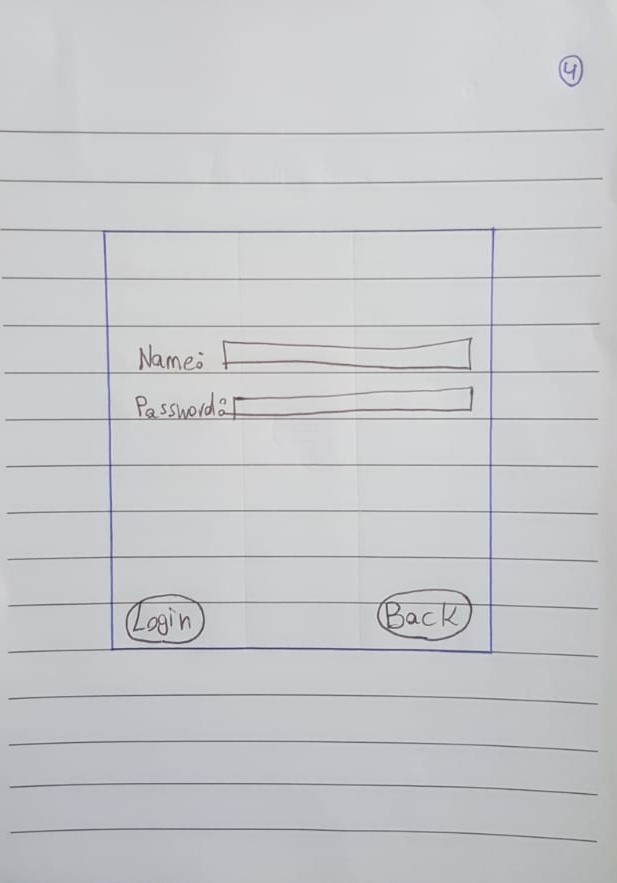 4
Name:
Password:
Login
Back